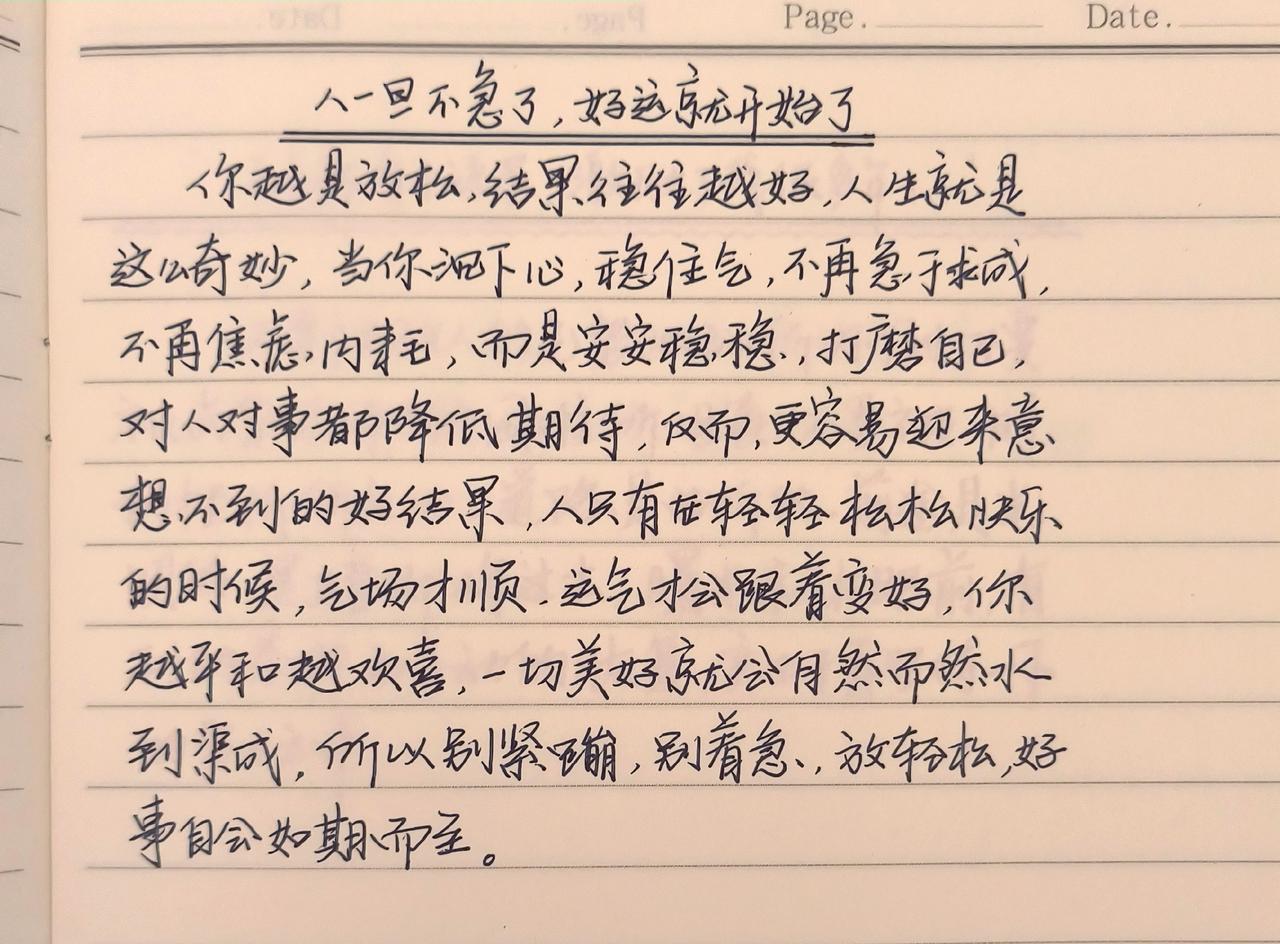 Page. Date.
人一旦不急了,好运就开始了
你越是放松,结果往往越好,人生就是
这么奇妙,当你沉下心,稳住气,不再急于求成,
不再焦虑,内耗,而是安安稳稳,打磨自己,
对人对事都降低期待,反而,更容易迎来意
想不到的好结果,人只有在轻轻松松快乐
的时候,气场才顺.运气才会跟着变好,你
越平和越欢喜,一切美好就会自然而然水
到渠成,所以别紧蹦,别着急,放轻松,好
事自会如期而至。